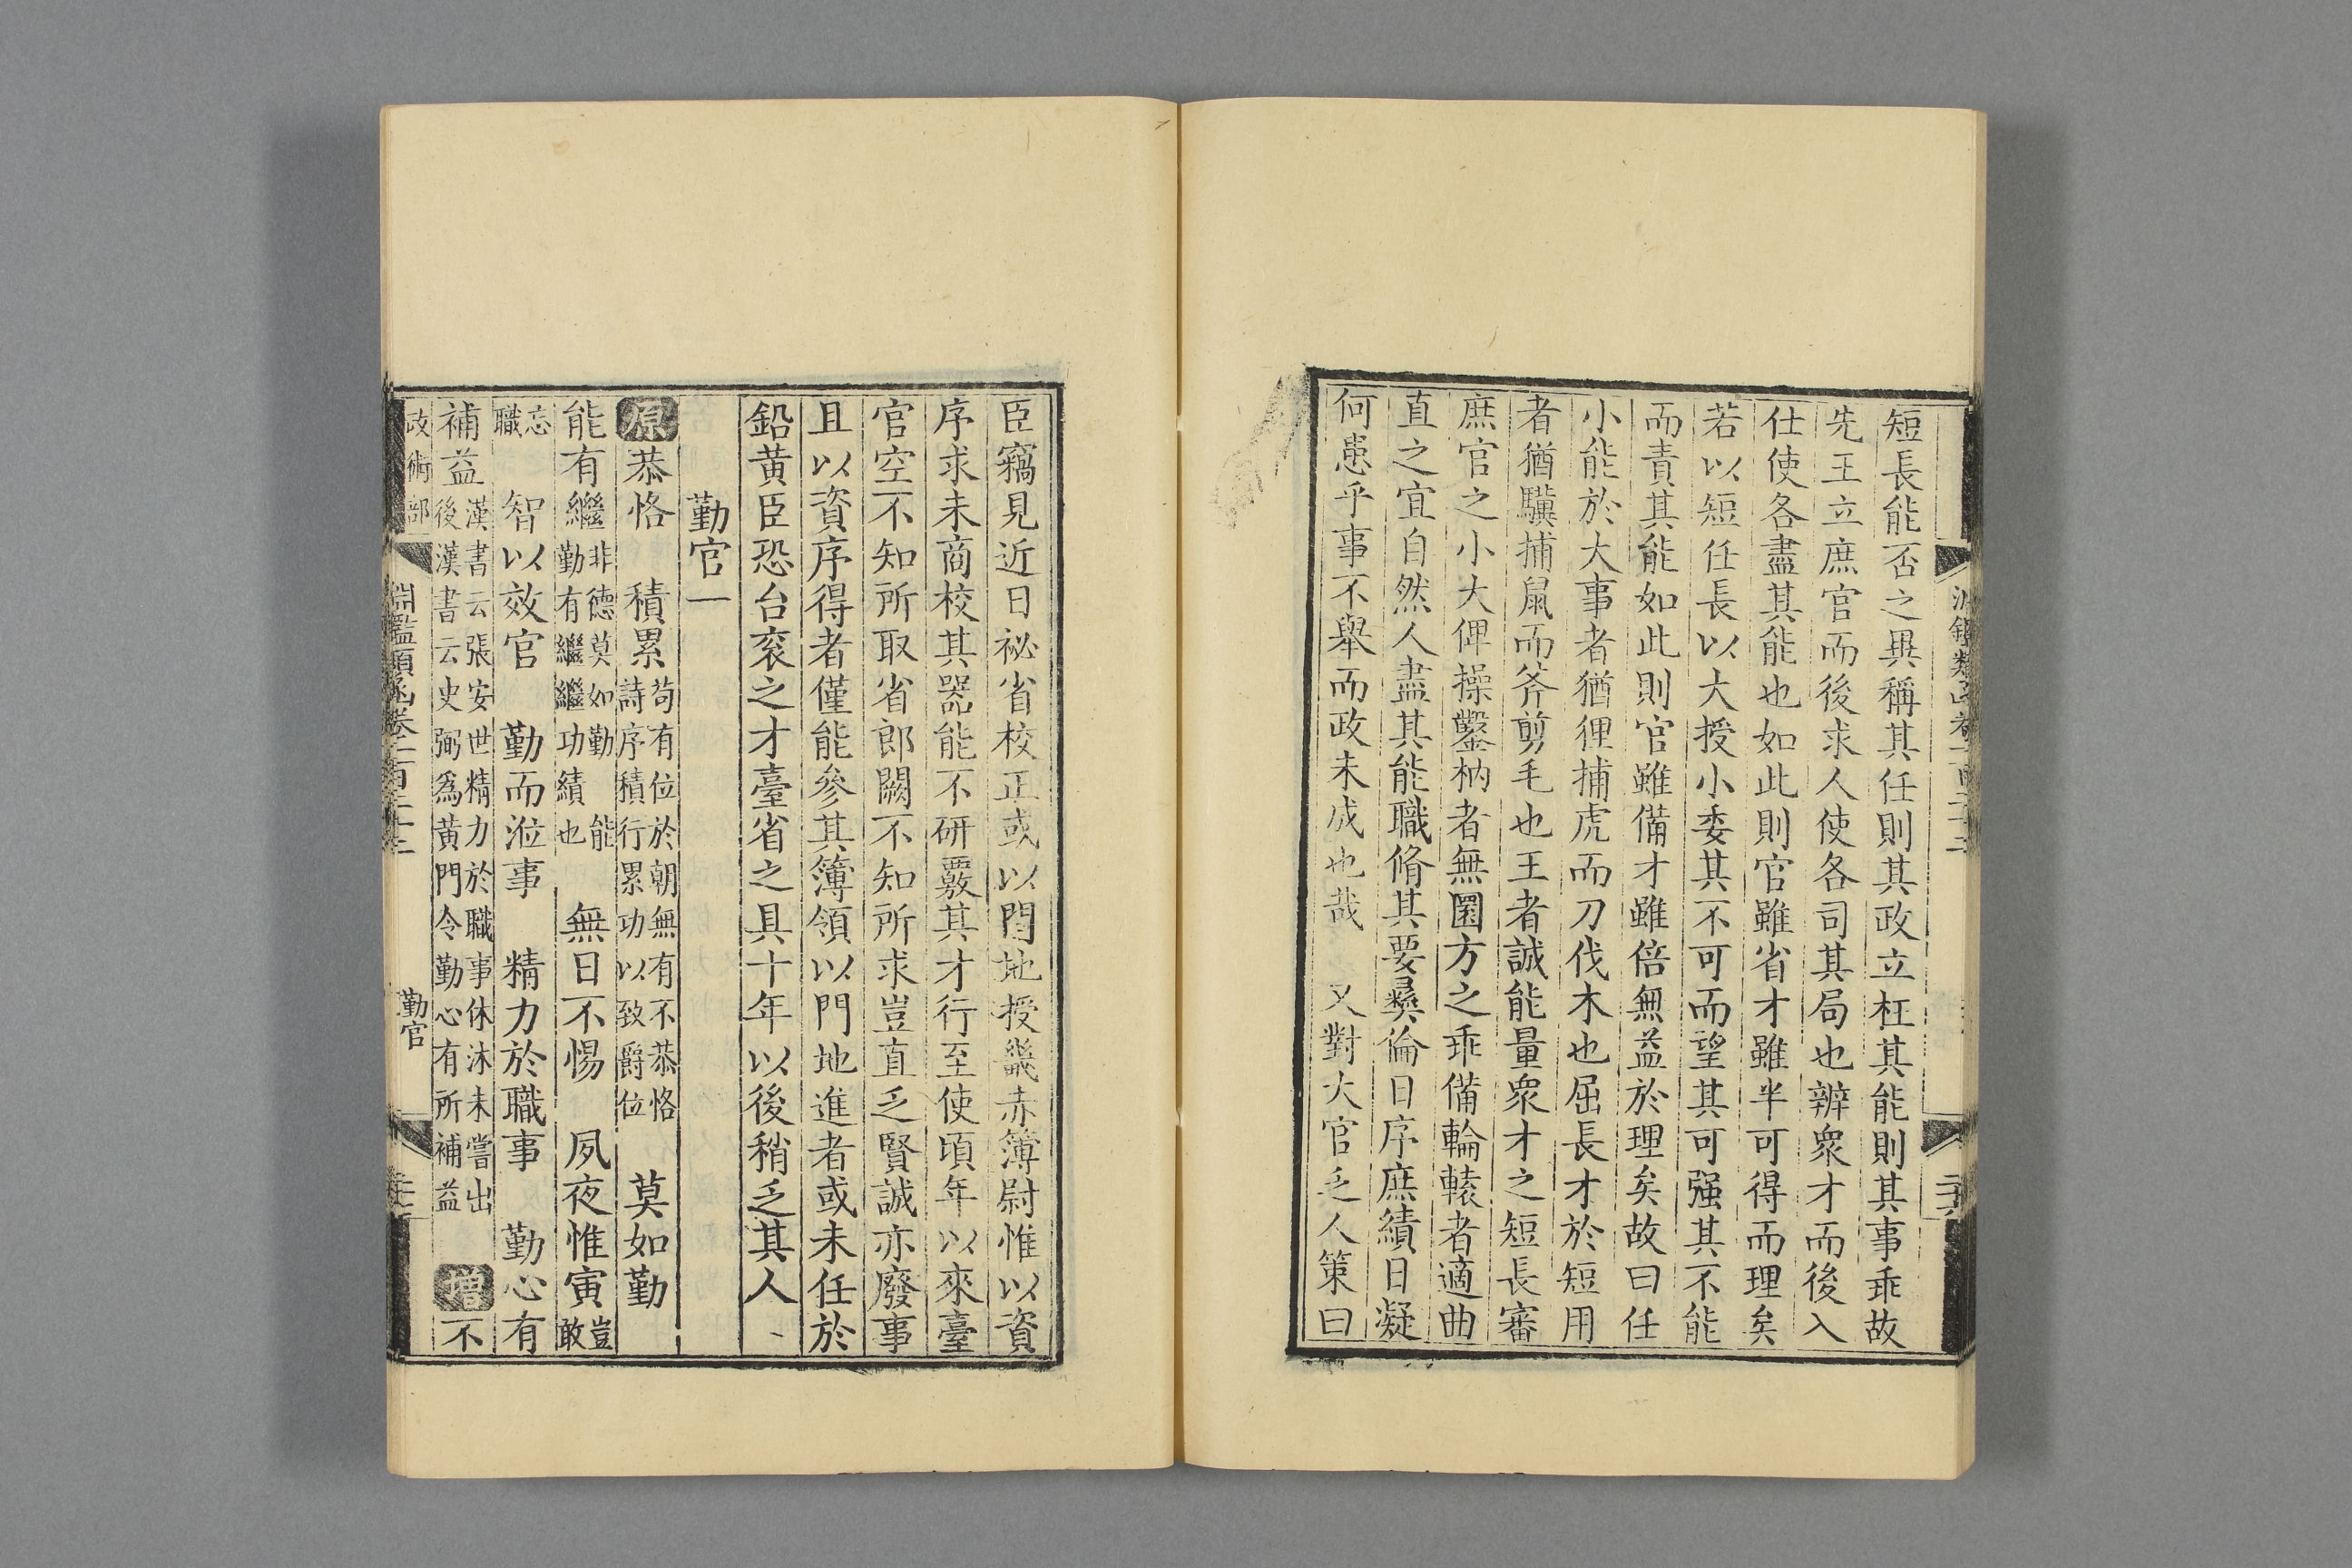 短長能否之異稱其任則其政立枉其能則其事乖故
先王立庶官而後求人使各司其局也辨衆才而後入
仕使各盡其能也如此則官雖省才雖半可得而理矣
若以短任長以大授小委其不可而望其可强其不能
而責其能如此則官雖備才雖倍無益於理矣故曰任
小能於大事者猶狸捕虎而刀伐木也屈長才於短用
者猶驥捕鼠而斧剪毛也王者誠能量衆才之短長審
庶官之小大俾操鑿枘者無圜方之乖備輪轅者適曲
直之宜自然人盡其能職脩其要彞倫日序庶績日凝
何患乎事不舉而政未成也哉 又對大官乏人策曰
臣竊見近日祕省校正或以門地授畿赤簿尉惟以資
序求未商校其器能不研覈其才行至使頃年以來臺
官空不知所取省郎闕不知所求豈直乏賢誠亦廢事
且以資序得者僅能參其簿領以門地進者或未任於
鉛黄臣恐台衮之才臺省之具十年以後稍乏其人
勤官一
原恭恪 積累 苟有位於朝無有不恭恪 詩序積行累功以致爵位 莫如勤
能有繼 非德莫如勤 能勤有繼繼功績也 無日不惕 夙夜惟寅 豈敢
忘職 智以效官 勤而涖事 精力於職事 勤心有
補益 漢書云張安世精力於職事休沐未嘗出 後漢書云史弼爲黄門令勤心有所補益 增不
政術部 淵鑑類函卷一百二十三 勤官